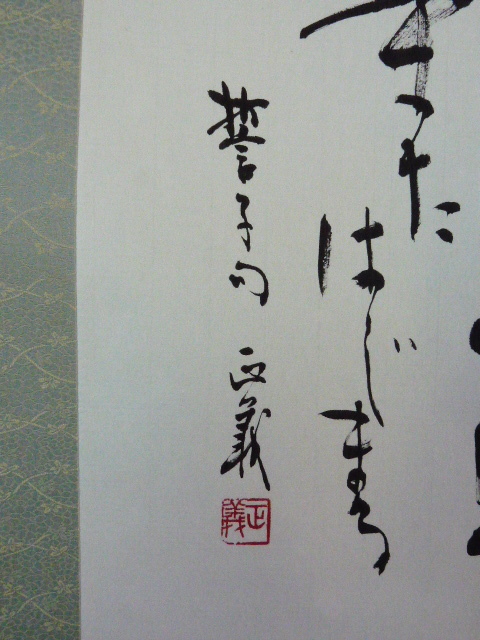 またはじまる
誓子句 正義
正義